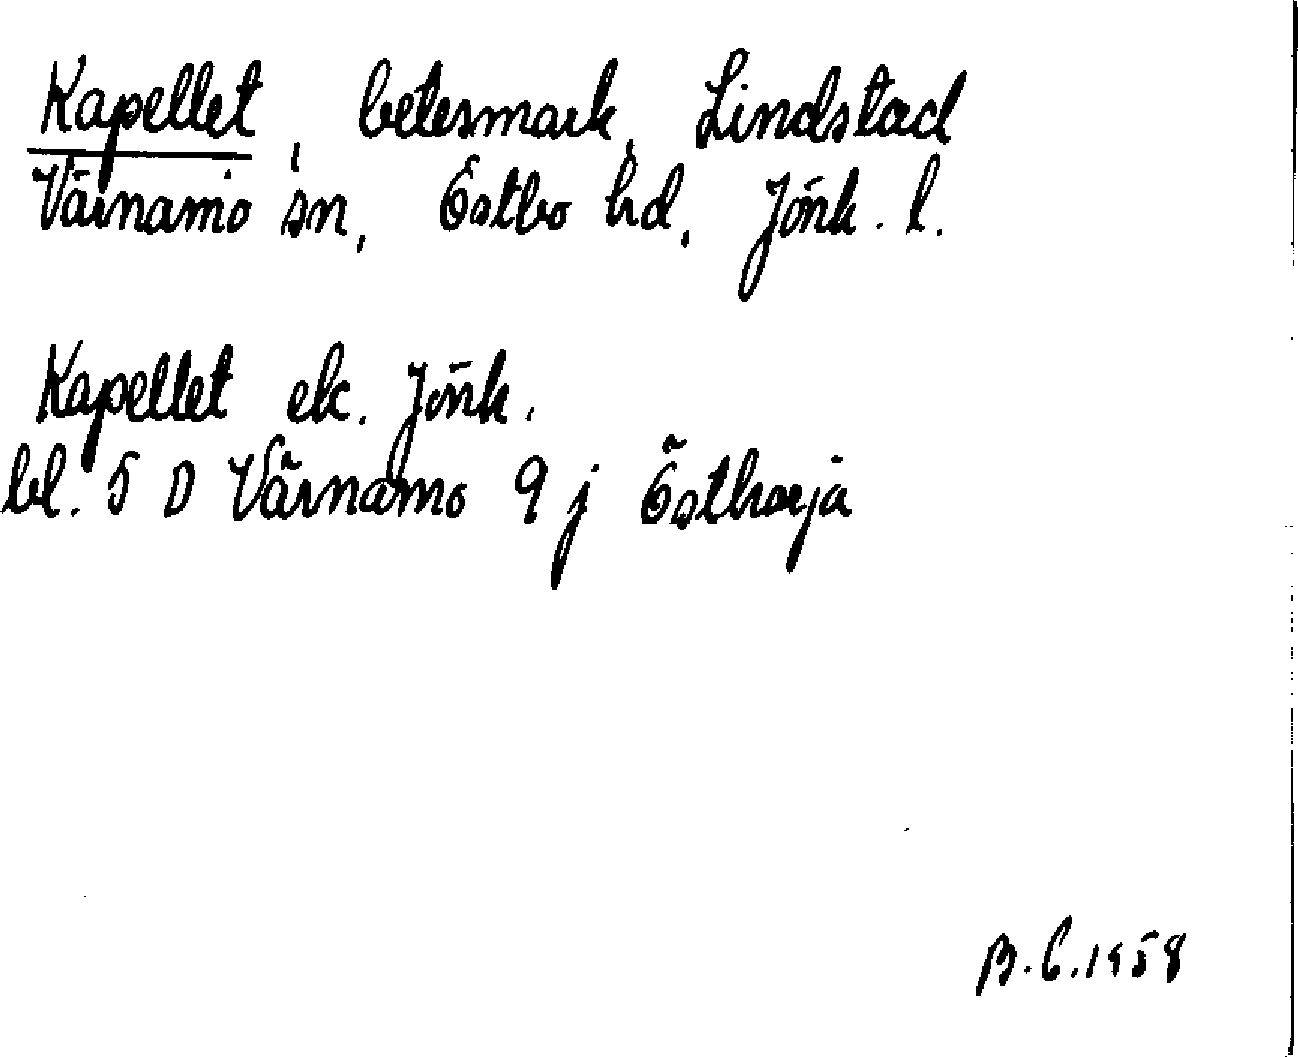 Kapellet, betesmark, Lindstad
Värnamo sn, Östbo hd, Jönk. l.
Kapellet ek. Jönk.
bl. 5 D Värnamo 9 j Östhorja
B.C.1958